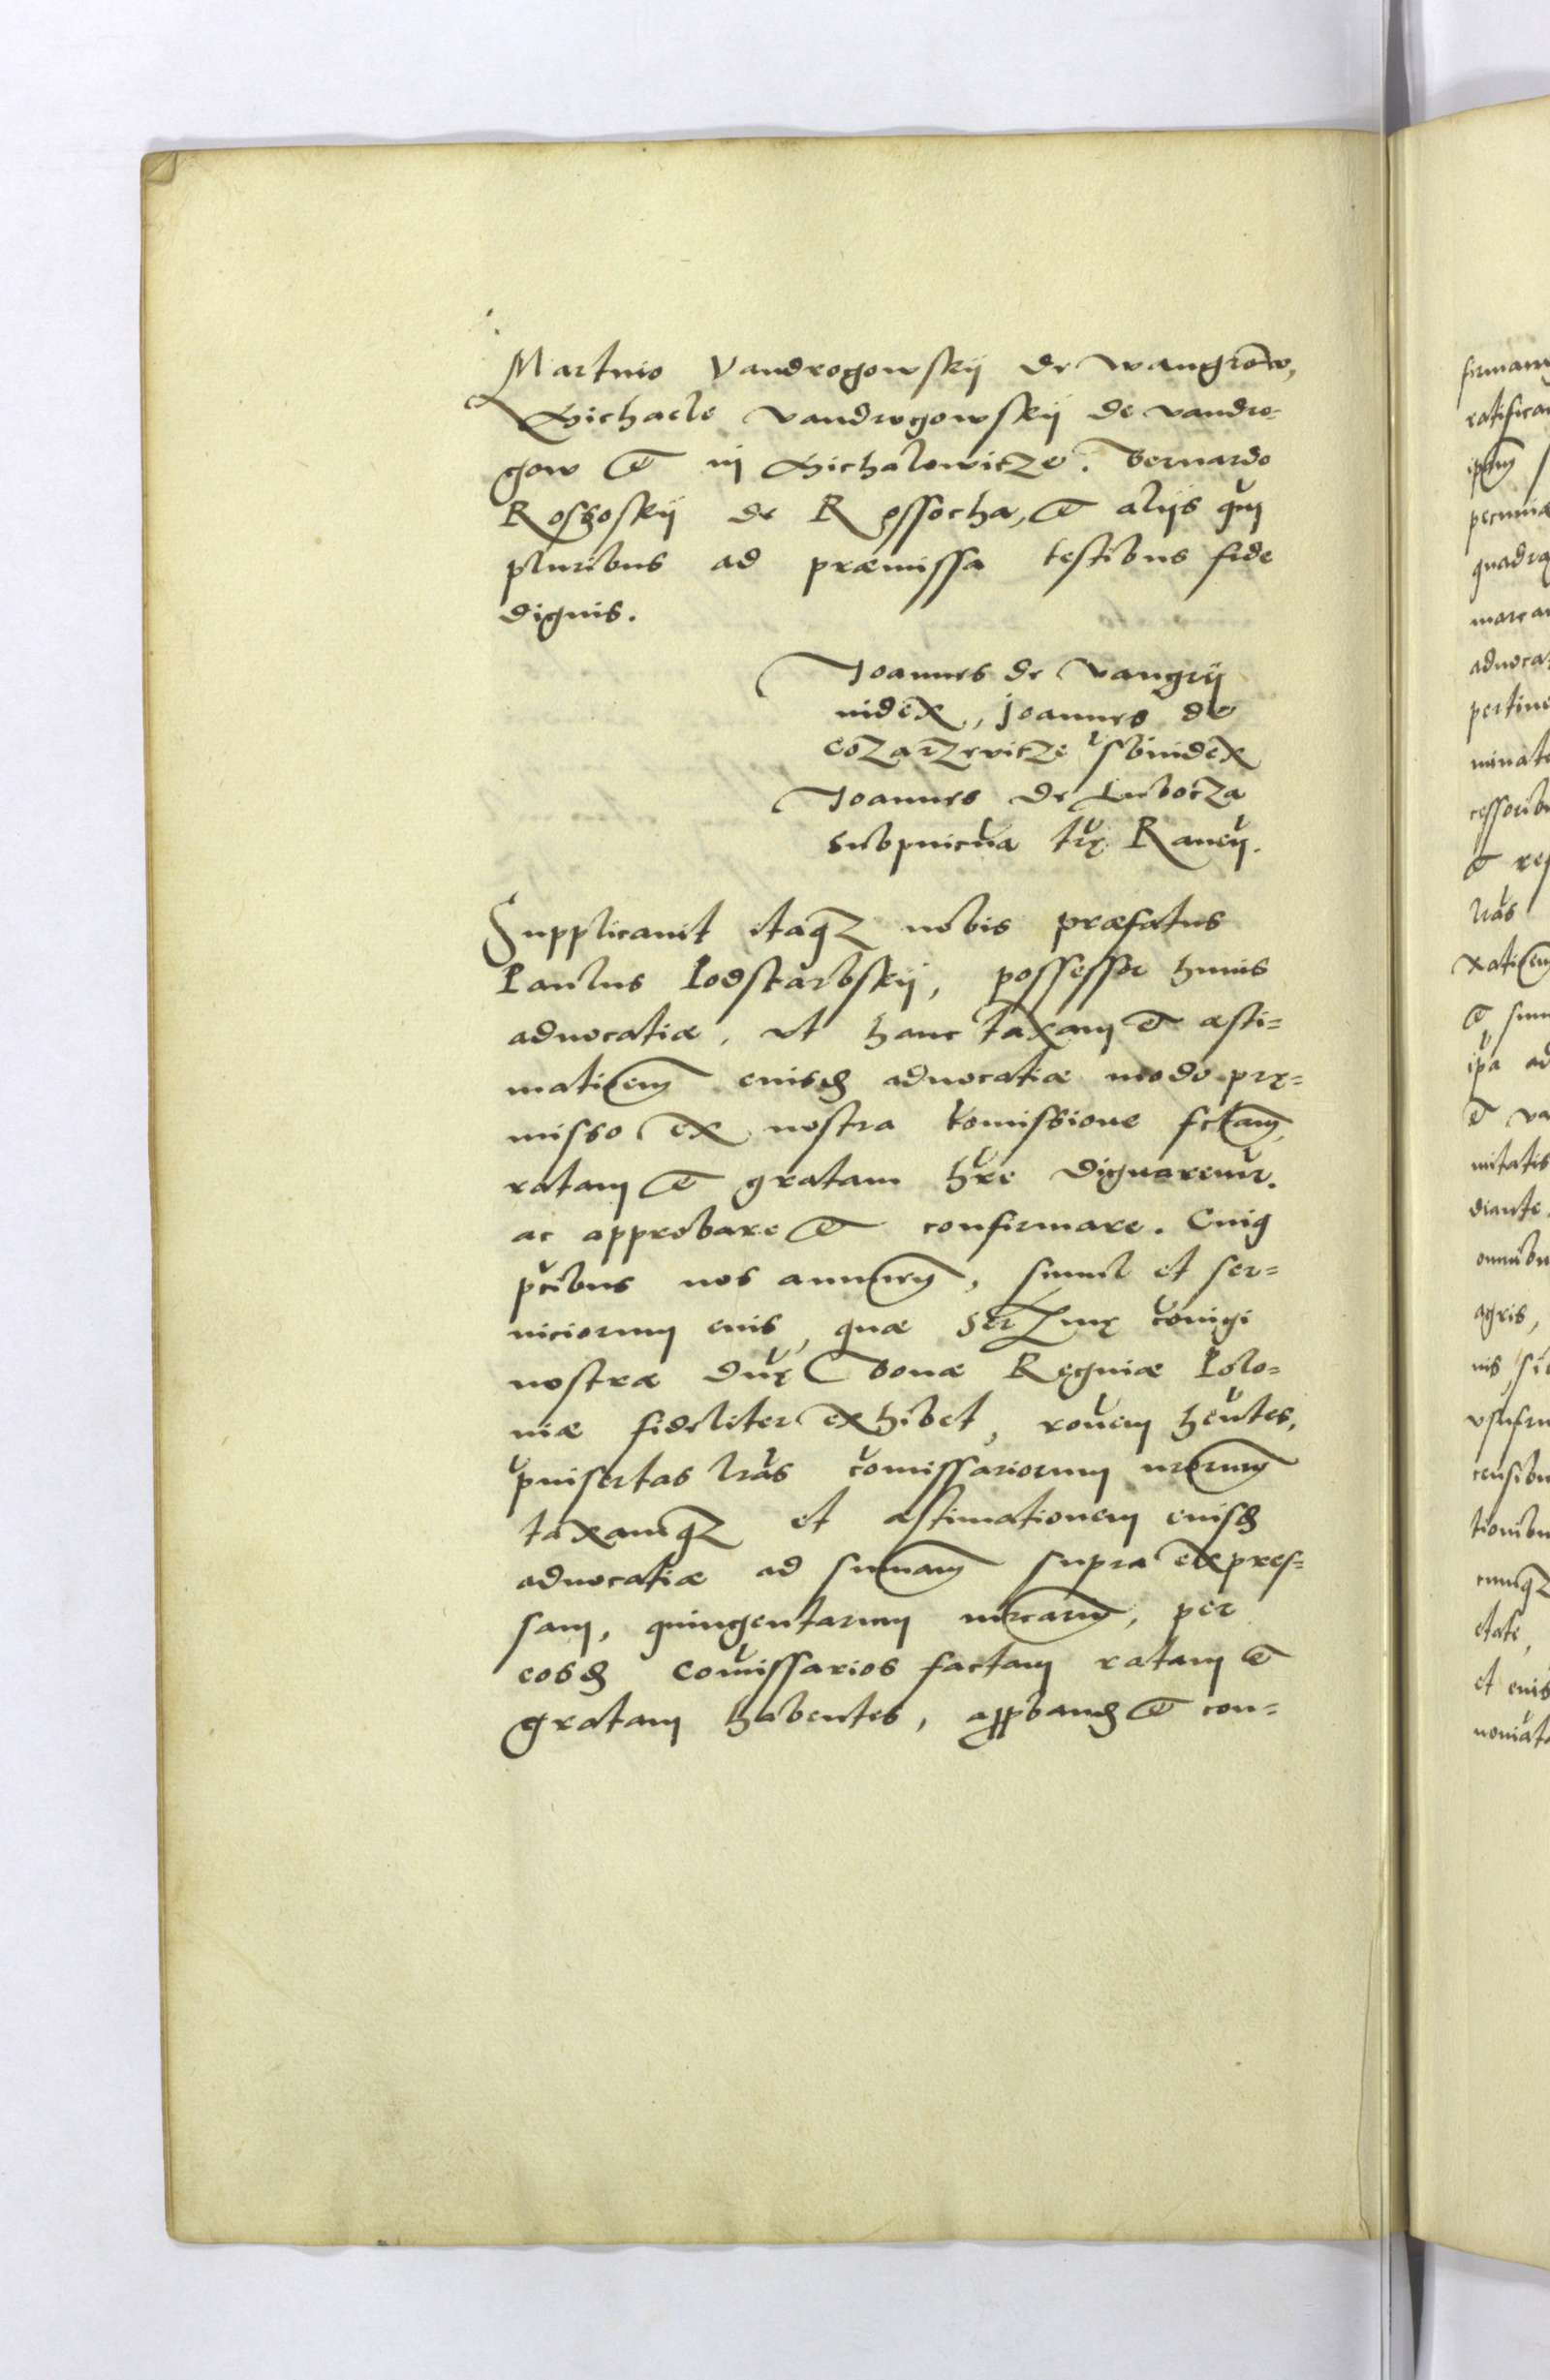 Martino Vandrogowskij de Wangrow,
Michaele Vandrogowskij de Vandro-
gow et in Michalowicze. Bernardo
Rossoskij de Rossocha, et alijs qm̃
pluribus ad præmissa testibus fide
dignis.
Joannes de Vangrij
iudex, Joannes de
cozarzewicze sbiudex
Joannes de Lubocza
Subpnicũa trę Raueñ.
Supplicauit itaqꝫ nobis præfatus
Paulus Podskarbskij, possessor huius
aduocatiæ, vt hanc taxam et æsti=
mationem eiusd aduocatiæ modo prę=
misso ex nostra comissione fctam
ratam et gratam hr̃e dignaremur.
ac approbare et confirmare. Cuiq
pcibus nos annuen, simul et ser=
uiciorum eius, quæ Serꝫmę cõiugi
nostræ Dnę Bonæ Reginæ Polo=
niæ fideliter exhibet, rõnem hẽntes,
pinsertas lrãs comissariorum nrorum
taxamqꝫ et æstimationem eiusd
aduocatiæ ad sumam supra expres=
sam, quingentarum mrcarum, per
eosd comissarios factam ratam et
gratam habentes, appband et con=
firmam
ratifica
ipam
pecuniæ
quadra
marca
aduoca
pertine
minat
cessorib
et re
lrãs
xationem
et sum
ipa ad
et va
nitatis
diante
omnibu
agris,
nis, si
vsufru
censibu
tionibu
cumqꝫ
etate,
et eius
nomiat